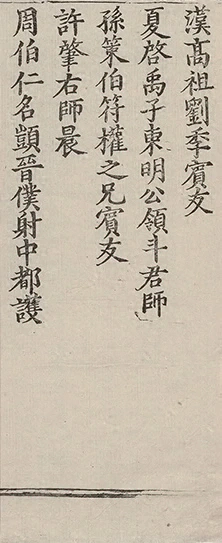 漢高祖劉季賓友
夏啓禹子東明公領斗君師
孫策伯符權之兄賓友
許肇右師晨
周伯仁名顗晉僕射中都護